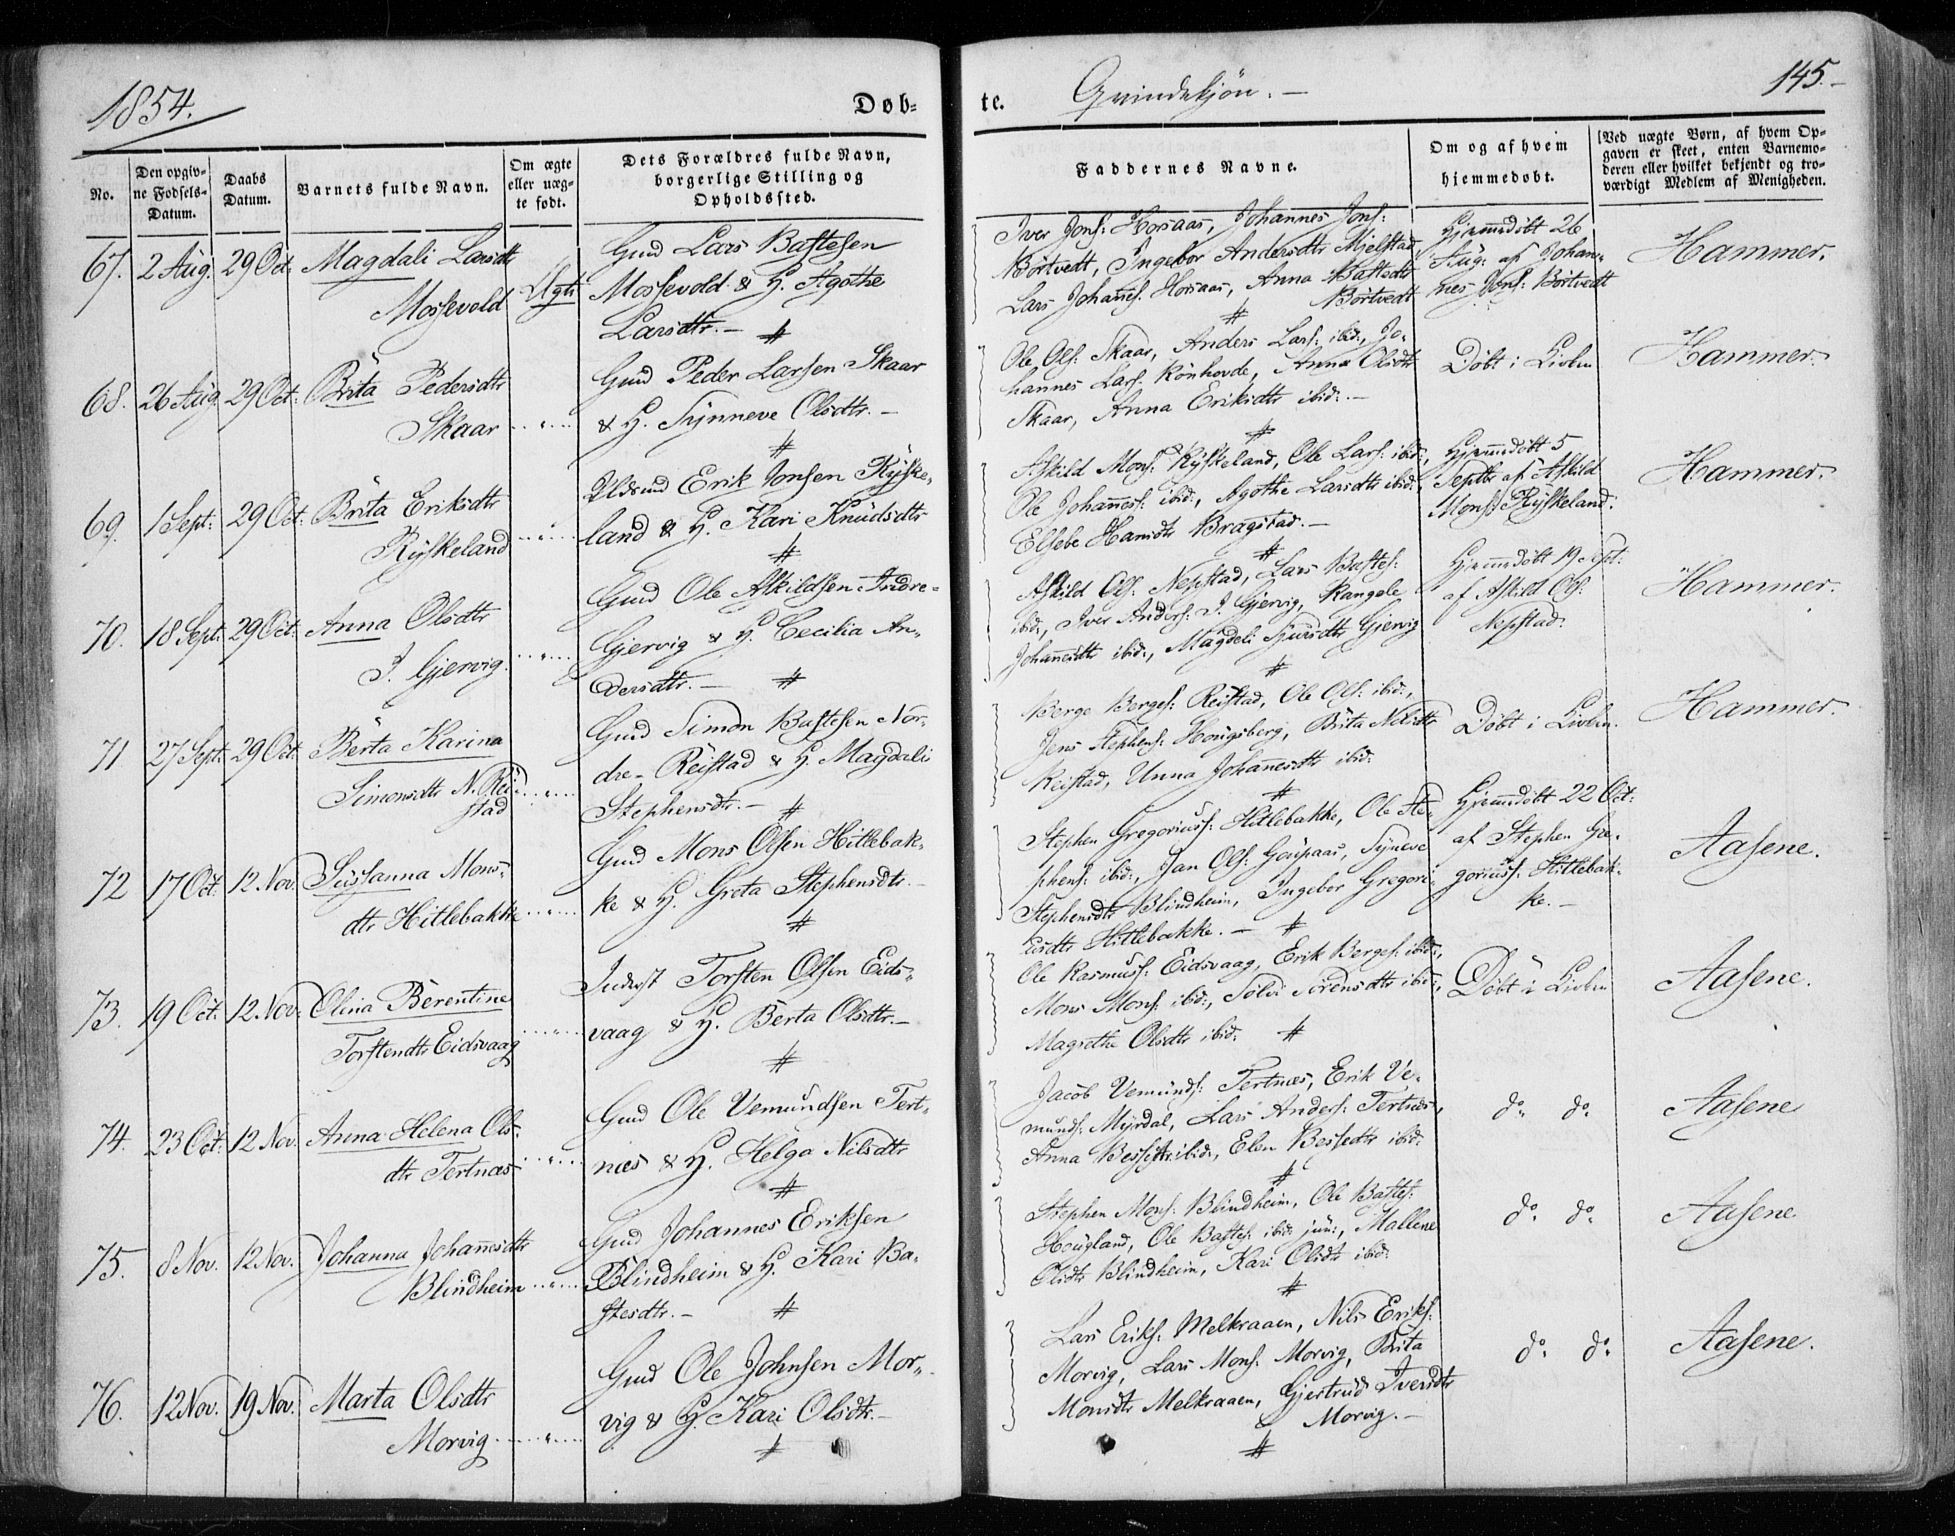 1854.
Døb-
te.
Qvindekjön. —
145. —
No.
Den opgiv-
ne Fødsels-
Datum.
Daabs
Datum.
Barnets fulde Navn.
Om ægte
eller uæg-
te født.
Dets Forældres fulde Navn,
borgerlige Stilling og
Opholdssted.
Faddernes Navne.
Om og af hvem
hjemmedøbt.
Ved uægte Børn, af hvem Op-
gaven er skeet, enten Barnemo-
deren eller hvilket bekjendt og tro-
værdigt Medlem af Menigheden.
67. 2 Aug. 29 Oct: Magdali Larsdtr
Mossevold
Ægte
Gmd Lars Bastesen
Mossevold & H. Agothe
Larsdtr. —
Iver Jons: Horsaas, Johannes Jons:
Börtvedt, Ingebor Andersdtr Mjelstad
Lars Johanes: Horsaas, Anna Bastedtr
Börtvedt
Hjemmedöbt 26
Aug: af Johan-
nes Jons: Börtvedt
Hammer.
68. 26 Aug. 29 Oct: Brita Pedersdtr
Skaar
Gmd Peder Larsen Skaar
& H. Synneve Olsdtr. —
Ole Ols: Skaar, Anders Lars: ibid:, Jo-
hannes Lars: Rönhovde, Anna Olsdtr
Skaar, Anna Eriksdtr ibid: —
Döbt i Kirken
Hammer.
69. 1 Sept: 29 Oct: Brita Eriksdtr
Rÿskeland
Erik Jonsen Rÿske-
land & H. Kari Knudsdtr
Askild Mons: Rÿskeland, Ole Lars: ibid:,
Ole Johanes: ibid:, Agothe Larsdtr ibid:,
Elsebe Hansdtr Bragstad. —
Hjemmedöbt 5
Septbr af Askild
Mons: Rÿskeland.
Hammer.
70. 18 Sept: 29 Oct: Anna Olsdtr
I. Gjervig.
Gmd Ole Askildsen Indre-
Gjervig & H. Cecilia An-
dersdtr. —
Askild Ols: Nepstad, Lars Bastes:
ibid:, Iver Anders: I. Gjervig, Rangele
Johanesdtr ibid:, Magdeli Sjursdtr Gjervig
Hjemmedöbt 19 Sept:
af Askild Ols:
Nepstad.
Hammer.
71 27 Sept: 29 Oct: Berta Karina
Simonsdtr N. Rei-
stad
Gmd Simon Bastesen Nor-
dre- Reistad & H. Magdali
Stephensdtr. —
Berge Berges: Reistad, Ole Ols: ibid:,
Jens Stephens: Hougsberg, Brita Nilsdtr
Reistad, Unna Johanesdtr ibid:
Döbt i Kirken.
Hammer.
72 17 Oct: 12 Nov. Süssanna Mons-
dtr Hitlebakke
Gmd Mons Olsen Hitlebak-
ke & H. Greta Stephensdtr. —
Stephen Gregoriuss: Hitlebakke, Ole Ste-
phens: ibid:, Jan Ols: Goupaas, Syneve
Stephensdtr Blindheim, Ingebor Gregori-
usdtr Hitlebakke. —
Hjemmedöbt 22 Oct:
af Stephen Gre-
goriuss: Hitlebak-
ke. —
Aasene.
73. 19 Oct: 12 Nov: Olina Berentine
Torstendtr Eidsvaag
Inderst Torsten Olsen Eids-
vaag & H. Berta Olsdtr. —
Ole Rasmuss: Eidsvaag, Erik Berges: ibid:,
Mons Mons: ibid:, Sölvi Sörensdtr ibid:,
Magrethe Olsdtr ibid:
Döbt i Kirken
Aasene.
74. 23 Oct: 12 Nov. Anna Helena Ols-
dtr Tertnæs
Gmd Ole Vemundsen Tert-
næs & H. Helga Nilsdtr
Jacob Vemunds: Tertnæs, Erik Ve-
munds: Mÿrdal, Lars Anders: Tertnæs,
Anna Bessedtr ibid:, Elen Bessedtr ibid:
do. do.
Aasene
75. 8 Nov. 12 Nov. Johanna Johanesdtr
Blindheim
Gmd Johannes Eriksen
Blindheim & H. Kari Ba-
stesdtr. —
Stephen Mons: Blindheim, Ole Bastes:
Hougland, Ole Bastes: ibid: jun:, Mallene
Olsdtr Blindheim, Kari Olsdtr ibid:
do. do.
Aasene
76. 12 Nov. 19 Nov. Marta Olsdtr
Morvig
Gmd Ole Johnsen Mor-
vig & H. Kari Olsdtr. —
Lars Eriks: Melkraaen, Nils Eriks:
Morvig, Lars Mons: Morvig, Brita
Monsdtr Melkraaen, Gjertrud Iversdtr
Morvig. —
do. do.
Aasene.